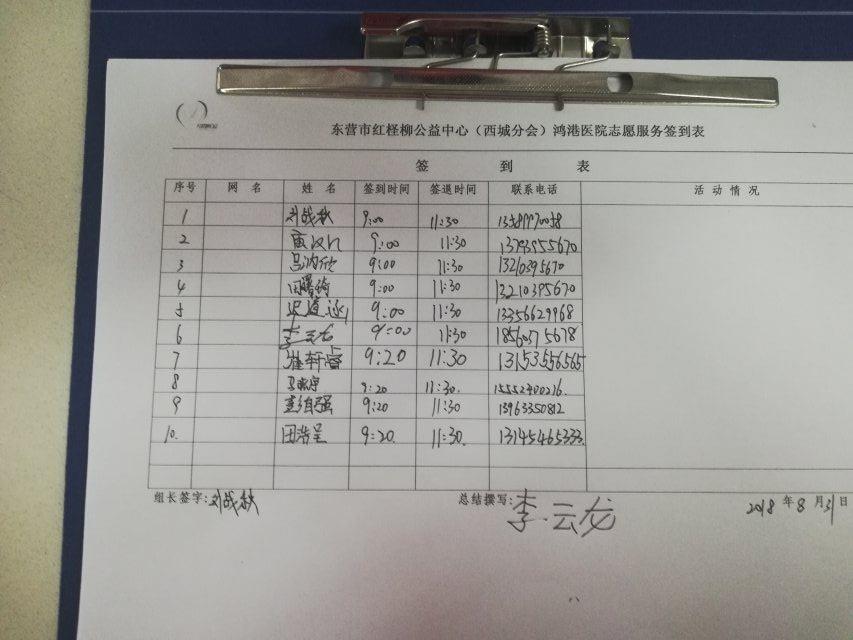 东营市红柽柳公益中心（西城分会）鸿港医院志愿服务签到表
签 到 表
序号 网 名 姓 名 签到时间 签退时间 联系电话 活 动 情 况
1 刘战秋 9:00 11:30
2 9:00 11:30 13793955670
3 9:00 11:30 13210395670
4 9:00 11:30 13210395670
5 9:00 11:30 13356629968
6 李云龙 9:00 11:30 18560375678
7 崔轩睿 9:20 11:30 13153656565
8 9:20 11:30. 15552400216.
9 彭自强 9:20 11:30 13963350812
10. 田浩呈 9:20. 11:30. 13145465333.
组长签字:刘战秋 总结撰写:李云龙 2018 年 8 月 31 日